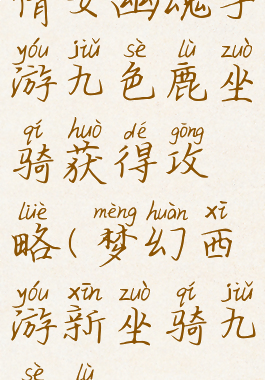 情女幽魂手
yóu jiǔ sè lù zuò
游九色鹿坐
qí huò dé gōng
骑获得攻
lüè mèng huàn xī
略(梦幻西
yóu xīn zuò qí jiǔ
游新坐骑九
sè lù